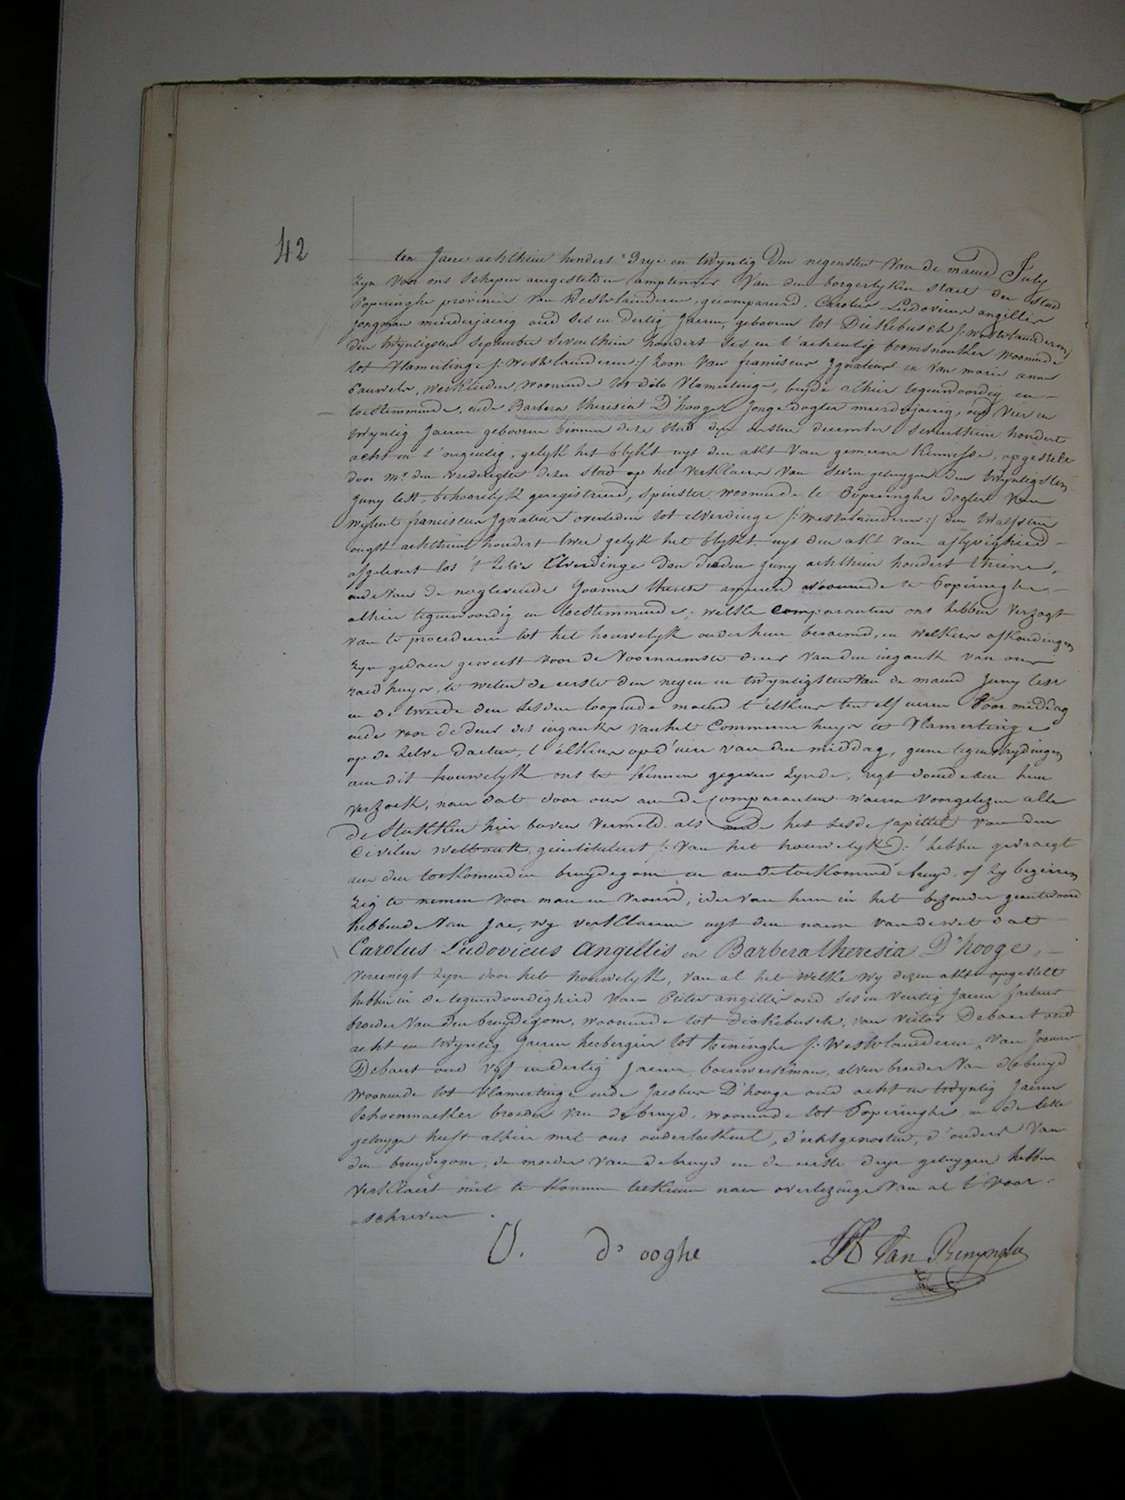 42
ten Jaere achthien hondert Drye en twyntig Den negensten van de maend July
zyn voor ons schepen aengestelden amptenaer van den borgerlyken staet der stad
Poperinghe provincie van Westvlaenderen, gecompareerd, Carolus Ludovicus angillis
jongman meerderjaerig oud ses en dertig Jaeren, geboren tot Dickebusch /: Westvlaenderen
den twyntigsten September seventhien hondert ses en t'achentig boomsnoeker woonende
tot Vlamertinge /: Westvlaenderen :/ zoon van franciscus Ignatius en van marie anne
Pauwels, werklieden woonende tot dito Vlamertinge, beyde alhier tegenwoordig en
toestemmende, ende Barbara theresia D'hooge Jonge dogter meerderjaerig, oud vier en
twyntig Jaeren geboren binnen deze stad den december seventhien hondert
acht en t'negentig, gelyk het blykt uyt den akt van gemeene Kennisse, opgestelt
door mr. den vrederegter dezer stad op het verklaeren van seven getuygen den twyntigsten
Juny lest, behoorelyk geregistreerd, spinster, woonende te Poperinghe dogter van
wylent franciscus Ignatius overleden tot elverdinge /: Westvlaenderen :/ den twalfsten
ougst achthien hondert twee gelyk het blykt uyt den akt van aflyvigheid
afgelevert tot 't zelve Elverdinge den Juny achthien hondert thiene,
ende van de nogleevende Joanne therese woonende te Poperinghe,
alhier tegenwoordig en toestemmende; welke comparanten ons hebben verzogt
van te procederen tot het houwelyk onder hun beraemd, en welkers afkondingen
zyn gedaen geweest voor de voornaemste deur van den ingank van ons
raedhuys, te weten de eerste den negen en twyntigsten van de maend Juny lest
en de tweede den sesden loopende maend t'elkens ten elf ueren voor middag
ende voor de deur des ingank van het Commune huys te Vlamertinge
op de zelve daeten, t'elkens op d'uere van den middag, geene tegenstrydingen
aen dit houwelyk ons te kennen gegeven zynde, regt doende aen hun
verzoek, naer dat door ons aen de comparanten waeren voorgelezen alle
de Stukken hier boven vermeld als ende het sesde Capittel van den
Civilen wetboek, geintituleert /: van het houwelyk :/ hebben gevraegt
aen den toekomenden bruydegom en aen de toekomende bruyd, of zy begeiren
zig te nemen voor man en vrouw, ider van hun in het bezonder geantwoord
hebbende van Jae, wy verklaeren uyt den naem van de wet dat
Carolus Ludovicus Angillis en Barbera theresia D'hooge,
vereenigt zyn door het houwelyk, van al het welke wy dezen akt opgestelt
hebben in de tegenwoordigheid van Pieter angillis oud ses en veertig Jaeren
broeder van den bruydegom, woonende tot dickebusch, van victor Debaert oud
acht en twyntig Jaeren herbergier tot Reninghe /: Westvlaenderen, van Joannes
Debaert oud vyf en dertig Jaeren, bouwerkman, alven broeder van de bruyd
woonende tot Vlamertinge ende Jacobus D'hooge oud acht en twyntig Jaeren
schoenmaeker broeder van de bruyd, woonende tot Poperinghe, en de leste
getuyge heeft alhier met ons onderteekent, d'echtgenooten, d'ouders van
den bruydegom, de moeder van de bruyd en de eerste drye getuygen hebben
verklaert niet te konnen teekenen naer overlezinge van al t'voor-
schreven.
d'ooghe
Van Renynghe